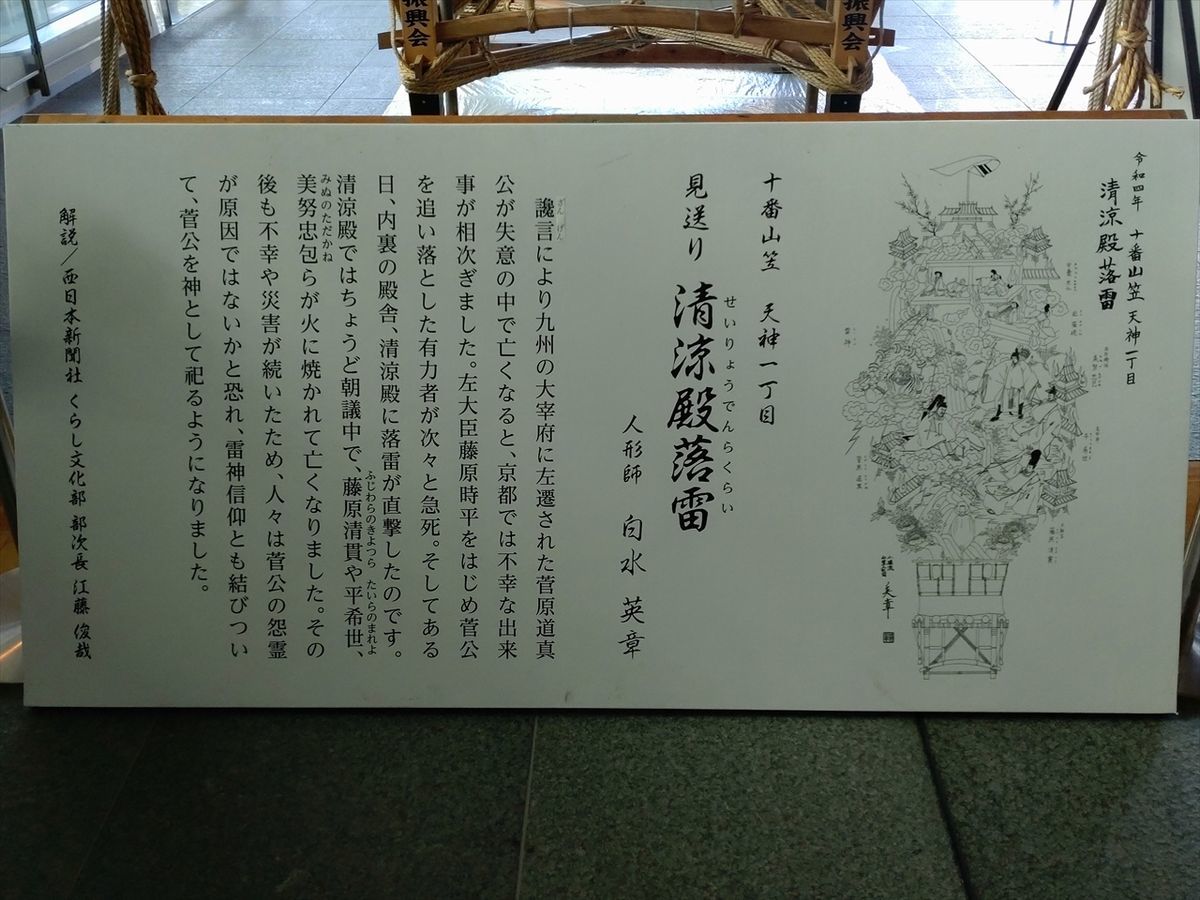 振興会
振興会
令和四年 十番山笠 天神一丁目
清涼殿落雷
十番山笠 天神一丁目
見送り 清涼殿落雷
せいりょうでんらくらい
人形師 白水 英章
讒言により九州の大宰府に左遷された菅原道真
ざんげん
公が失意の中で亡くなると、京都では不幸な出来
事が相次ぎました。左大臣藤原時平をはじめ菅公
を追い落とした有力者が次々と急死。そしてある
日、内裏の殿舎、清涼殿に落雷が直撃したのです。
清涼殿ではちょうど朝議中で、藤原清貫や平希世、
ふじわらのきよつら たいらのまれよ
美努忠包らが火に焼かれて亡くなりました。その
みぬのただかね
後も不幸や災害が続いたため、人々は菅公の怨霊
が原因ではないかと恐れ、雷神信仰とも結びつい
て、菅公を神として祀るようになりました。
解説／西日本新聞社 くらし文化部 部次長 江藤 俊哉